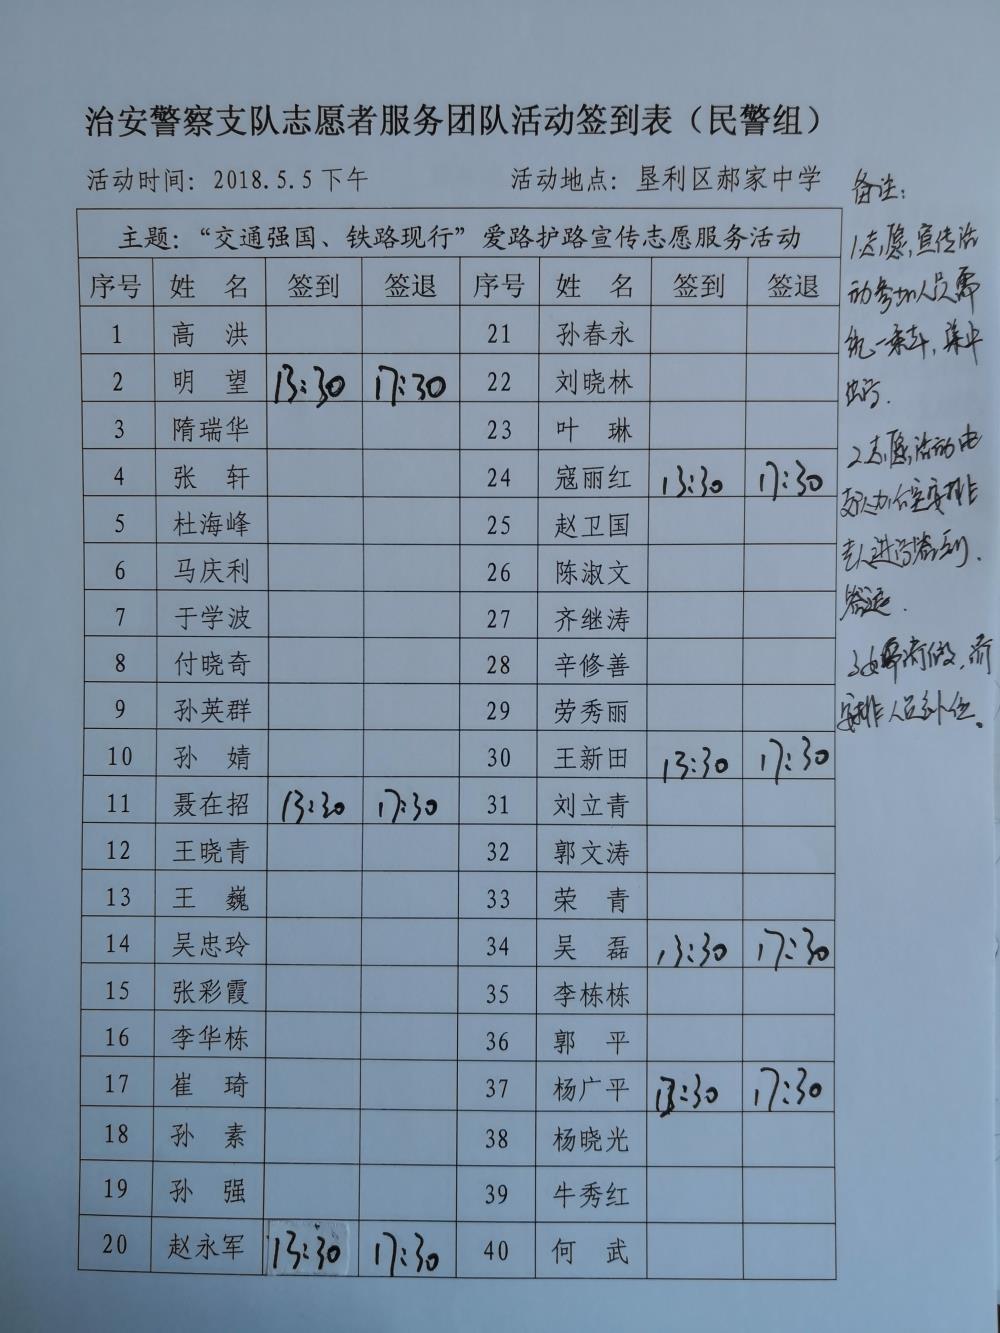 治安警察支队志愿者服务团队活动签到表（民警组）
活动时间：2018.5.5下午 活动地点：垦利区郝家中学
主题：“交通强国、铁路现行”爱路护路宣传志愿服务活动
序号 姓 名 签到 签退 序号 姓 名 签到 签退
1 高 洪 21 孙春永
2 明 望 13:30 17:30 22 刘晓林
3 隋瑞华 23 叶 琳
4 张 轩 24 寇丽红 13:30 17:30
5 杜海峰 25 赵卫国
6 马庆利 26 陈淑文
7 于学波 27 齐继涛
8 付晓奇 28 辛修善
9 孙英群 29 劳秀丽
10 孙 婧 30 王新田 13:30 17:30
11 聂在招 13:30 17:30 31 刘立青
12 王晓青 32 郭文涛
13 王 巍 33 荣 青
14 吴忠玲 34 吴 磊 13:30 17:30
15 张彩霞 35 李栋栋
16 李华栋 36 郭 平
17 崔 琦 37 杨广平 13:30 17:30
18 孙 素 38 杨晓光
19 孙 强 39 牛秀红
20 赵永军 13:30 17:30 40 何 武
备注：
1.志愿宣传活
动参加人员需
统一乘车，集中
出行.
2.志愿活动由
支队办公室安排
专人进行签到、
签退.
3.如需请假，需
安排人员补位。